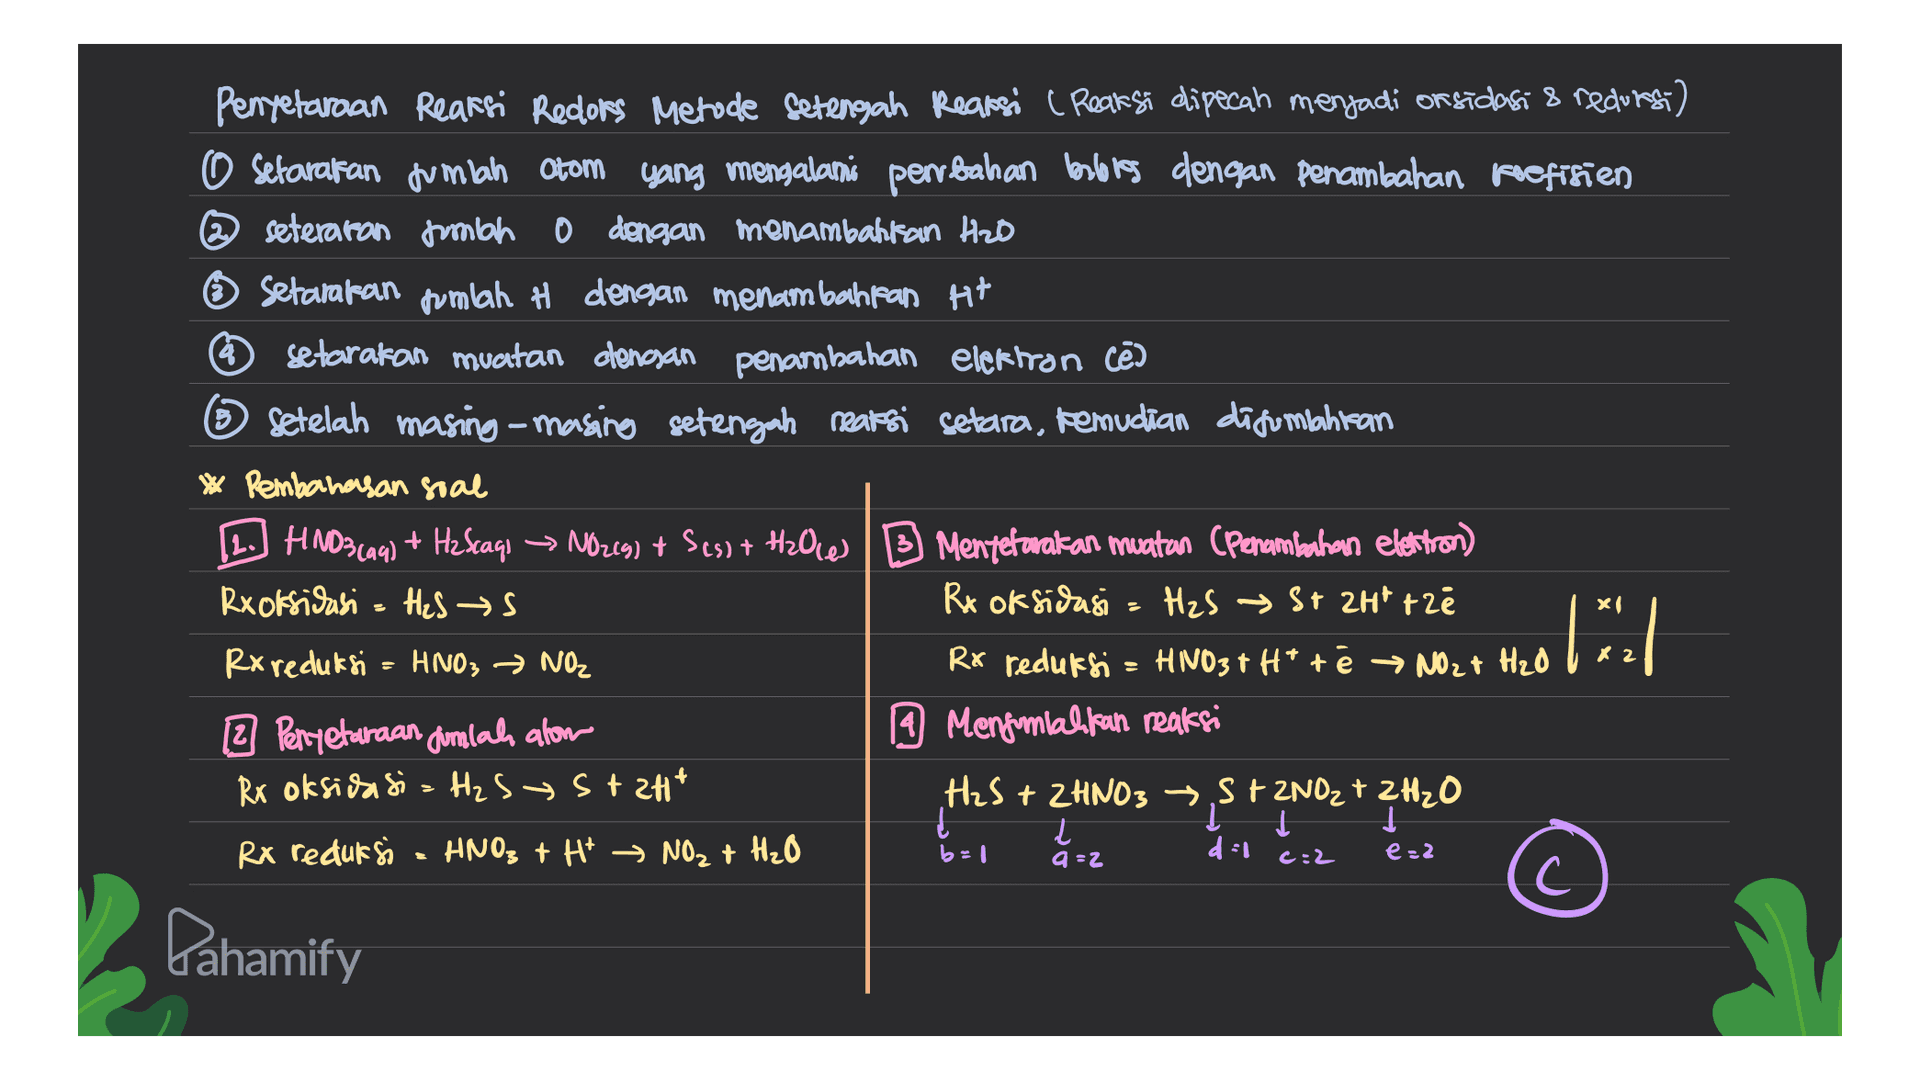 Penyetaraan Reaksi Redoks Metode Setengah Reaksi (Reaksi dipecah menjadi oksidasi & reduksi)
① Setarakan jumlah atom yang mengalami perubahan biloks dengan penambahan koefisien
② seterakan jumlah O dengan menambahkan H₂O
③ Setarakan jumlah H dengan menambahkan H⁺
④ setarakan muatan dengan penambahan elektron (ē)
⑤ Setelah masing-masing setengah reaksi setara, kemudian dijumlahkan
* Pembahasan soal
1. HNO₃(aq) + H₂S(aq) → NO₂(g) + S(s) + H₂O(l)
Rx oksidasi = H₂S → S
Rx reduksi = HNO₃ → NO₂
2 Penyetaraan jumlah atom
Rx oksidasi = H₂S → S + 2H⁺
Rx reduksi = HNO₃ + H⁺ → NO₂ + H₂O
3 Menyetarakan muatan (Penambahan elektron)
Rx oksidasi = H₂S → S + 2H⁺ + 2ē | x1 |
Rx reduksi = HNO₃ + H⁺ + ē → NO₂ + H₂O | x2 |
4 Menjumlahkan reaksi
H₂S + 2HNO₃ → S + 2NO₂ + 2H₂O
b=1 a=2 d=1 c=2 e=2
C
Pahamify